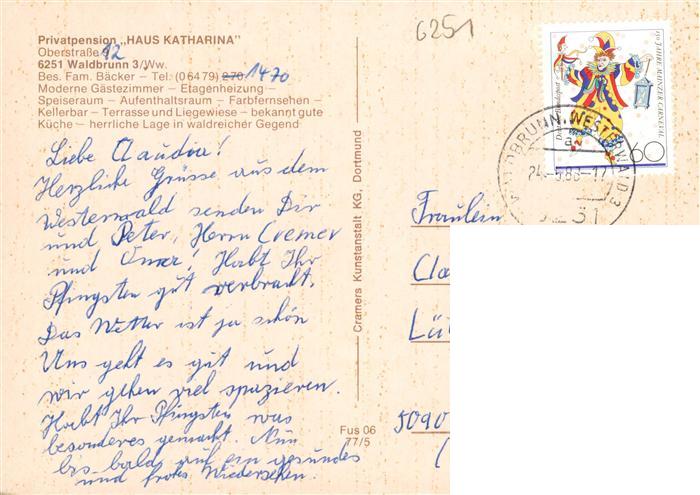 Privatpension „HAUS KATHARINA"
Oberstraße 12
6251 Waldbrunn 3/Ww.
Bes. Fam. Bäcker – Tel. (06479) 270 1470
Moderne Gästezimmer – Etagenheizung –
Speiseraum – Aufenthaltsraum – Farbfernsehen –
Kellerbar – Terrasse und Liegewiese – bekannt gute
Küche – herrliche Lage in waldreicher Gegend
Liebe Claudia!
Herzliche Grüsse aus dem
Westerwald senden Dir
und Peter, Herrn Cremer
und Oma! Habt Ihr
Pfingsten gut verbracht.
Das Wetter ist ja schön
Uns geht es gut und
wir gehen viel spazieren.
Habt Ihr Pfingsten was
besonderes gemacht. Nun
bis bald, auf ein gesundes
und frohes Wiedersehen.
Cramers Kunstanstalt KG, Dortmund
Fus 06
77/5
6251
150 JAHRE MAINZER CARNEVAL
Deutsche Bundespost
60
WALDBRUNN, WESTERWALD 3
az
24.-5.88-17
6251
Fräulein
Cla
Lü
5090